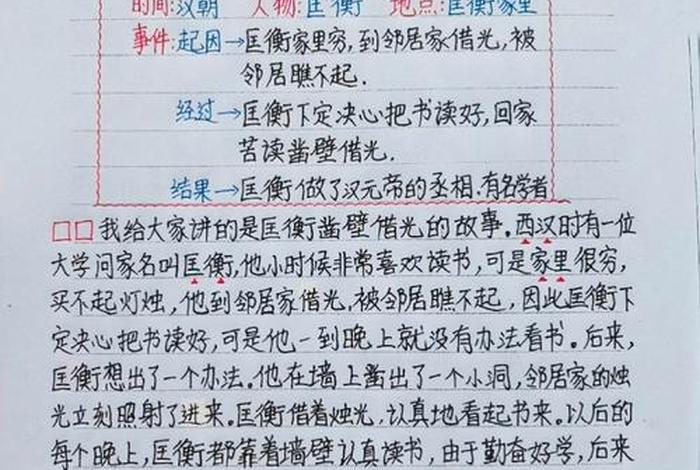 时间:汉朝 人物:匡衡 地点:匡衡家里
事件:起因→匡衡家里穷,到邻居家借光,被
邻居瞧不起.
经过→匡衡下定决心把书读好,回家
苦读凿壁借光.
结果→匡衡做了汉元帝的丞相.有名学者
我给大家讲的是匡衡凿壁借光的故事.西汉时有一位
大学问家名叫匡衡,他小时候非常喜欢读书,可是家里很穷,
买不起灯烛,他到邻居家借光.被邻居瞧不起,因此匡衡下
定决心把书读好,可是他一到晚上就没有办法看书.后来,
匡衡想出了一个办法.他在墙上凿出了一个小洞,邻居家的烛
光立刻照射了进来.匡衡借着烛光,认真地看起书来.以后的
每个晚上,匡衡都靠着墙壁认真读书,由于勤奋好学,后来